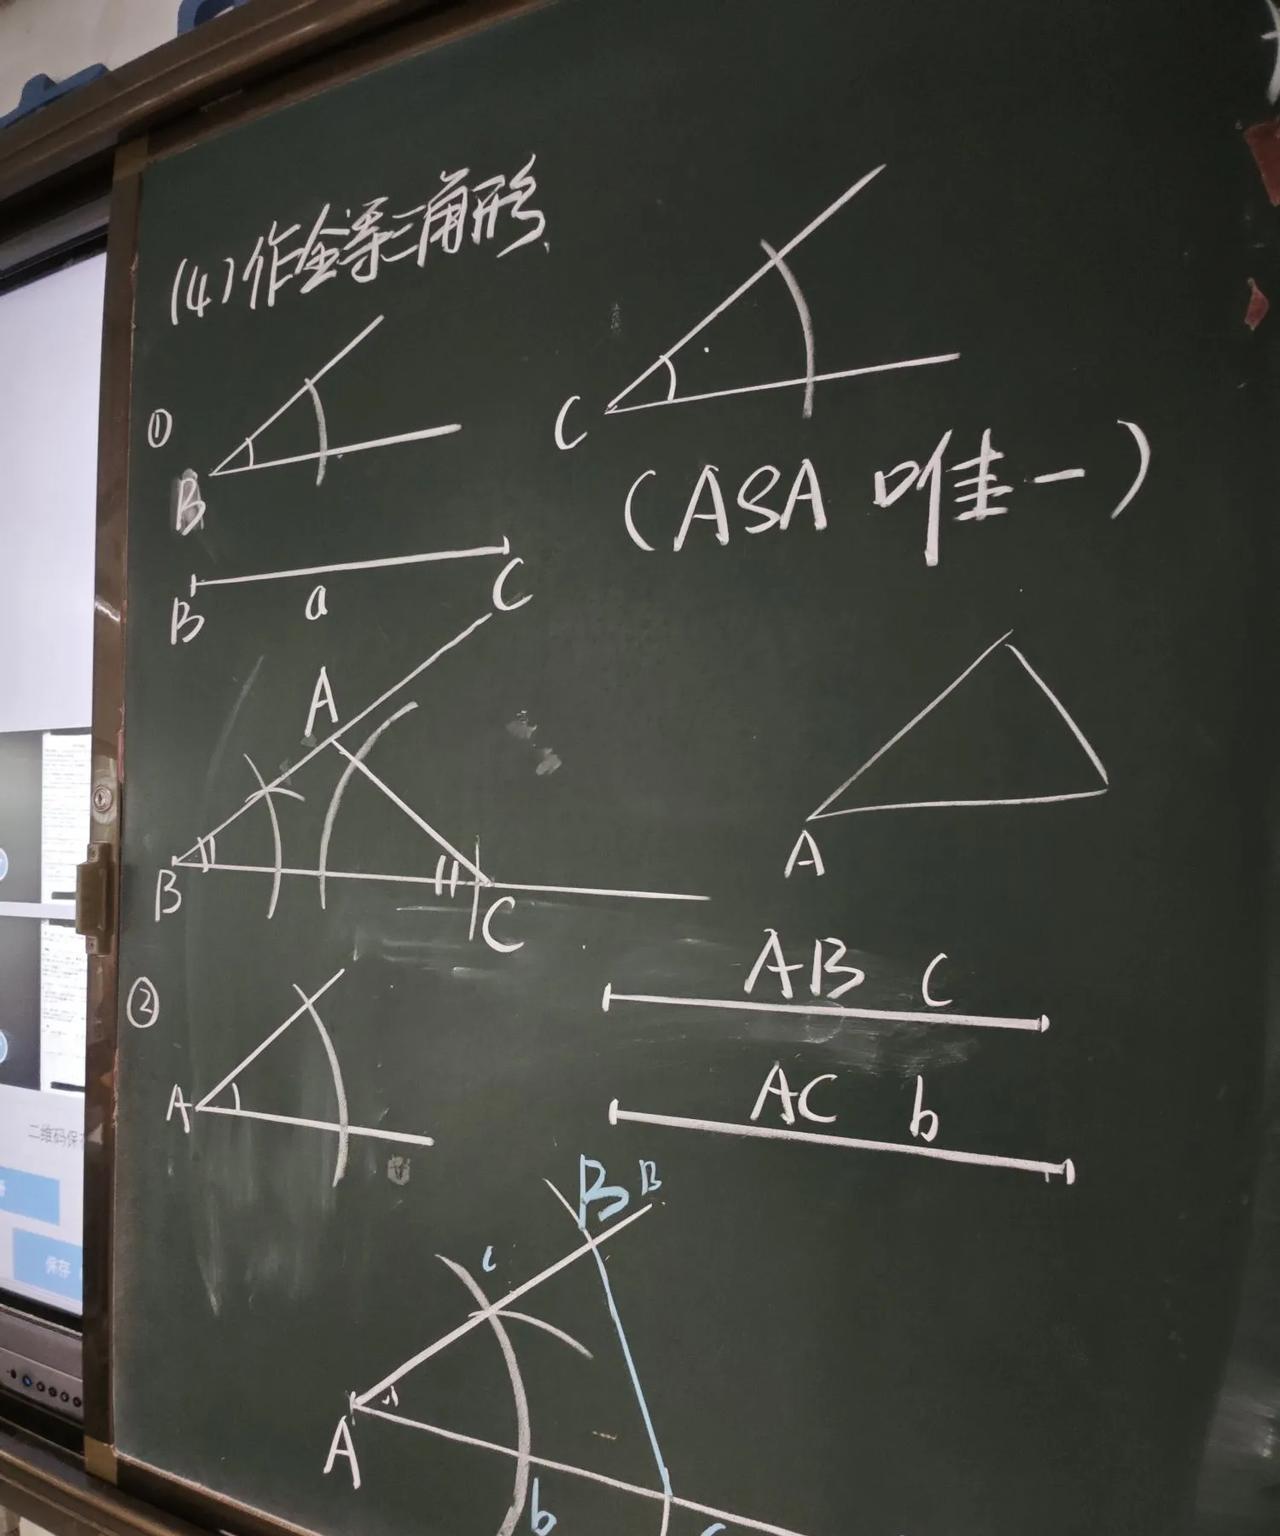 (4)作全等三角形
①
B
C
(ASA 唯一)
B
a
C
A
B
C
A
②
A
AB c
AC b
B B
c
A
b
二维码保
保存